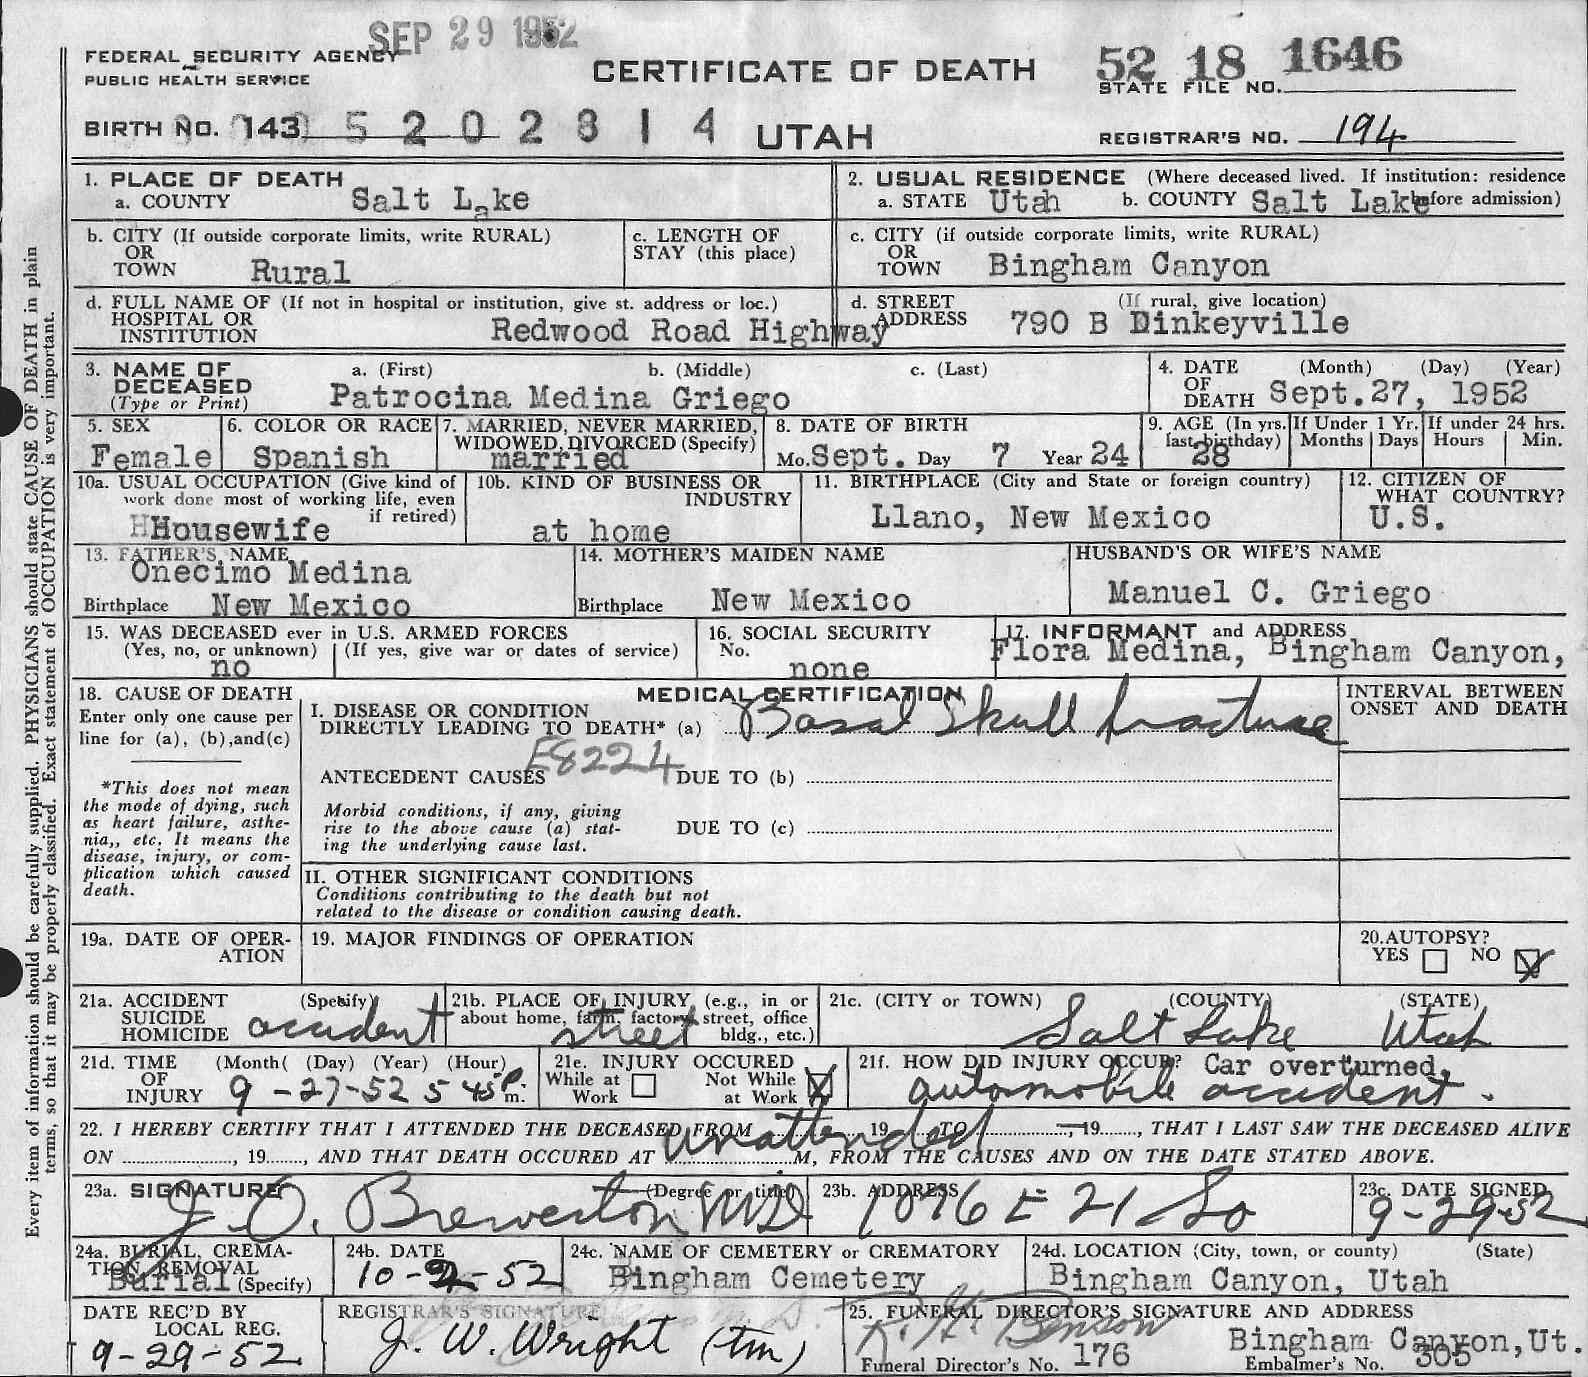 SEP 29 1952
FEDERAL SECURITY AGENCY
PUBLIC HEALTH SERVICE
CERTIFICATE OF DEATH
52 18 1646
STATE FILE NO.
BIRTH NO. 143 5 2 0 2 8 1 4 UTAH
REGISTRAR'S NO. 194
1. PLACE OF DEATH
a. COUNTY Salt Lake
2. USUAL RESIDENCE (Where deceased lived. If institution: residence before admission)
a. STATE Utah b. COUNTY Salt Lake
b. CITY (If outside corporate limits, write RURAL)
OR
TOWN Rural
c. LENGTH OF
STAY (this place)
c. CITY (if outside corporate limits, write RURAL)
OR
TOWN Bingham Canyon
d. FULL NAME OF (If not in hospital or institution, give st. address or loc.)
HOSPITAL OR
INSTITUTION Redwood Road Highway
d. STREET (If rural, give location)
ADDRESS 790 B Dinkeyville
3. NAME OF
DECEASED
(Type or Print)
a. (First) b. (Middle) c. (Last)
Patrocina Medina Griego
4. DATE (Month) (Day) (Year)
OF
DEATH Sept.27, 1952
5. SEX
Female
6. COLOR OR RACE
Spanish
7. MARRIED, NEVER MARRIED,
WIDOWED, DIVORCED (Specify)
married
8. DATE OF BIRTH
Mo. Sept. Day 7 Year 24
9. AGE (In yrs.
last birthday)
28
If Under 1 Yr.
Months Days
If under 24 hrs.
Hours Min.
10a. USUAL OCCUPATION (Give kind of
work done most of working life, even
if retired)
HHousewife
10b. KIND OF BUSINESS OR
INDUSTRY
at home
11. BIRTHPLACE (City and State or foreign country)
Llano, New Mexico
12. CITIZEN OF
WHAT COUNTRY?
U.S.
13. FATHER'S NAME
Onecimo Medina
Birthplace New Mexico
14. MOTHER'S MAIDEN NAME
Birthplace New Mexico
HUSBAND'S OR WIFE'S NAME
Manuel C. Griego
15. WAS DECEASED ever in U.S. ARMED FORCES
(Yes, no, or unknown) (If yes, give war or dates of service)
no
16. SOCIAL SECURITY
No.
none
17. INFORMANT and ADDRESS
Flora Medina, Bingham Canyon,
18. CAUSE OF DEATH
Enter only one cause per
line for (a), (b),and(c)
*This does not mean
the mode of dying, such
as heart failure, asthe-
nia,, etc. It means the
disease, injury, or com-
plication which caused
death.
MEDICAL CERTIFICATION
I. DISEASE OR CONDITION
DIRECTLY LEADING TO DEATH* (a) Basal Skull fracture
E8224
ANTECEDENT CAUSES DUE TO (b)
Morbid conditions, if any, giving
rise to the above cause (a) stat-
ing the underlying cause last.
DUE TO (c)
II. OTHER SIGNIFICANT CONDITIONS
Conditions contributing to the death but not
related to the disease or condition causing death.
INTERVAL BETWEEN
ONSET AND DEATH
19a. DATE OF OPER-
ATION
19. MAJOR FINDINGS OF OPERATION
20.AUTOPSY?
YES NO X
21a. ACCIDENT (Specify)
SUICIDE
HOMICIDE accident
21b. PLACE OF INJURY (e.g., in or
about home, farm, factory, street, office
bldg., etc.)
street
21c. (CITY or TOWN) (COUNTY) (STATE)
Salt Lake Utah
21d. TIME (Month( (Day) (Year) (Hour)
OF
INJURY 9-27-52 5 45 P. m.
21e. INJURY OCCURED
While at
Work
Not While
at Work X
21f. HOW DID INJURY OCCUR? Car overturned,
automobile accident.
22. I HEREBY CERTIFY THAT I ATTENDED THE DECEASED FROM unattended 19 TO , 19 , THAT I LAST SAW THE DECEASED ALIVE
ON , 19 , AND THAT DEATH OCCURED AT M, FROM THE CAUSES AND ON THE DATE STATED ABOVE.
23a. SIGNATURE (Degree or title)
J. O. Brewerton MD
23b. ADDRESS
1076 E 21 So
23c. DATE SIGNED
9-29-52
24a. BURIAL, CREMA-
TION, REMOVAL
(Specify)
Burial
24b. DATE
10-2-52
24c. NAME OF CEMETERY or CREMATORY
Bingham Cemetery
24d. LOCATION (City, town, or county) (State)
Bingham Canyon, Utah
DATE REC'D BY
LOCAL REG.
9-29-52
REGISTRAR'S SIGNATURE
J. W. Wright (tm)
25. FUNERAL DIRECTOR'S SIGNATURE AND ADDRESS
Benson
Bingham Canyon,Ut.
Funeral Director's No. 176
Embalmer's No. 305
Every item of information should be carefully supplied. PHYSICIANS should state CAUSE OF DEATH in plain
terms, so that it may be properly classified. Exact statement of OCCUPATION is very important.